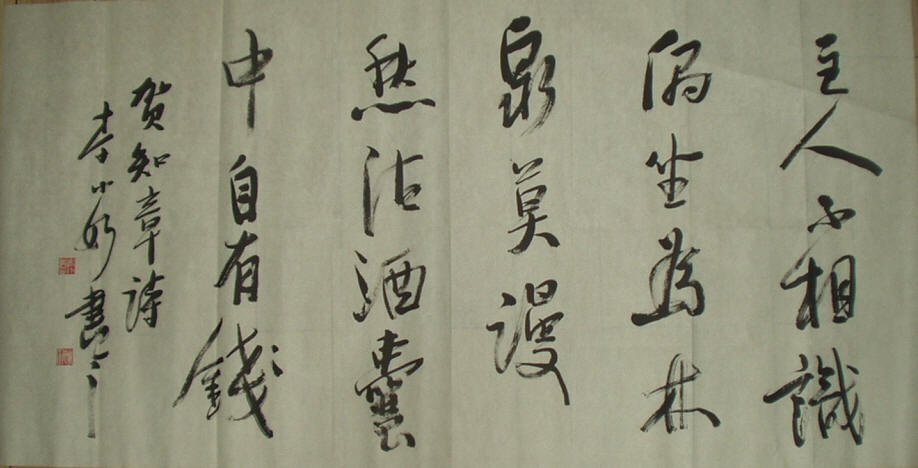 主人不相識
偶坐為林
泉莫謾
愁沽酒囊
中自有錢
贺知章诗
李小妙書